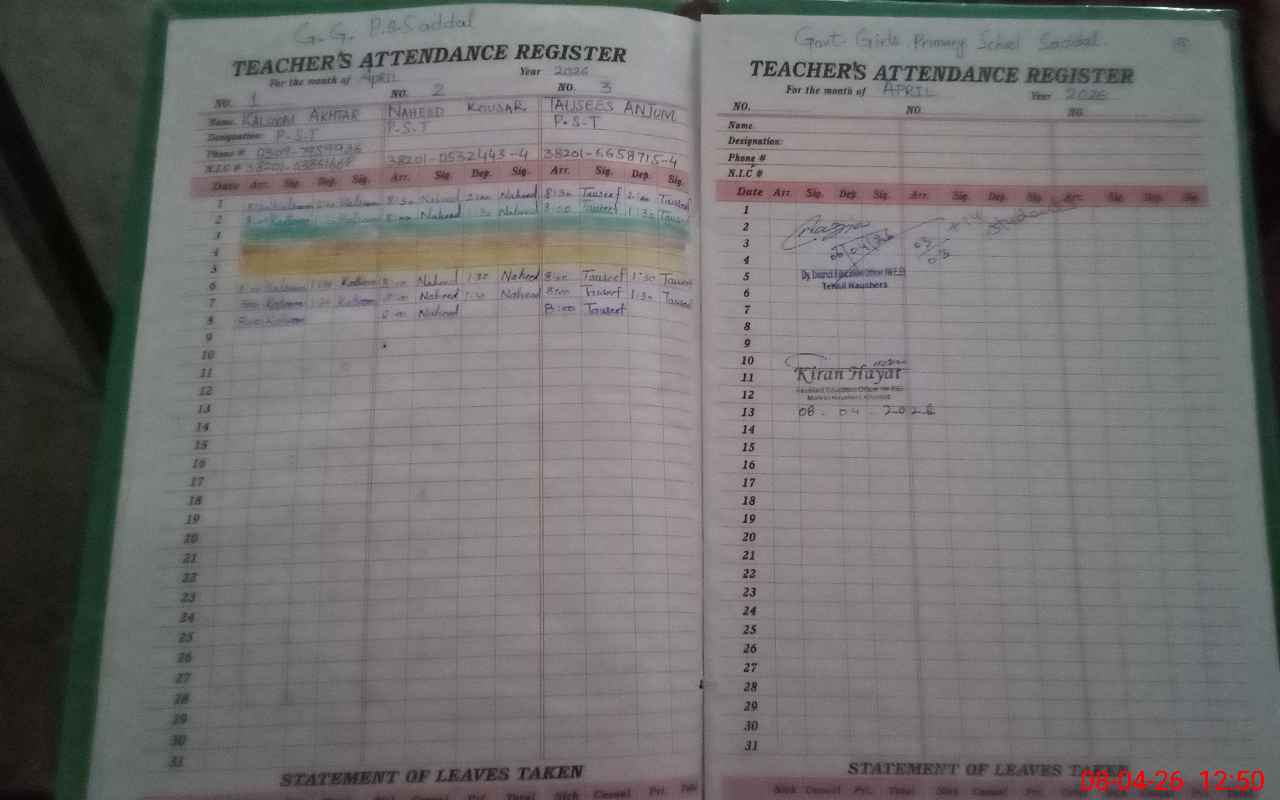 G. G. P.S Saddal
TEACHER'S ATTENDANCE REGISTER
For the month of APRIL Year 2026
NO. 1 NO. 2 NO. 3
Name. KALSOOM AKHTAR NAHEED KOUSAR TAUSEES ANJUM
Designation: P-S-T P-S-T P-S-T
Phone #
N.I.C # 38201-0532443-4 38201-6658715-4
Date Arr. Sig. Dep. Sig. Arr. Sig. Dep. Sig. Arr. Sig. Dep. Sig.
1 Kalsoom Kalsoom 8:30 Naheed 2:00 Naheed 8:30 Tauseef 2:00 Tauseef
2 8:00 Kalsoom Kalsoom 8:00 Naheed 1:30 Naheed 8:00 Tauseef 1:30 Tauseef
3
4
5
6 8:00 Kalsoom 1:30 Kalsoom 8:00 Naheed 1:30 Naheed 8:00 Tauseef 1:30 Tauseef
7 8:00 Kalsoom 1:30 Kalsoom 8:00 Naheed 1:30 Naheed 8:00 Tauseef 1:30 Tauseef
8 8:00 Kalsoom 8:00 Naheed 8:00 Tauseef
9
10
11
12
13
14
15
16
17
18
19
20
21
22
23
24
25
26
27
28
29
30
31
STATEMENT OF LEAVES TAKEN
Sick Casual Pri. Total Sick Casual Pri. Total
Govt. Girls Primary School Saddal
TEACHER'S ATTENDANCE REGISTER
For the month of APRIL Year 2026
NO. NO. NO.
Name
Designation:
Phone #
N.I.C #
Date Arr. Sig. Dep. Sig. Arr. Sig. Dep. Sig. Arr. Sig. Dep. Sig.
1
2
3
4
5 Dy. District Education Officer (W-EE)
6 Tehsil Naushera
7
8
9
10
11 Kiran Hayat
12 Assistant Education Officer (W-EE)
13 08-04-2026
14
15
16
17
18
19
20
21
22
23
24
25
26
27
28
29
30
31
STATEMENT OF LEAVES TAKEN
Sick Casual Pri. Total Sick Casual Pri. Total Sick Casual Pri.
08-04-26 12:50